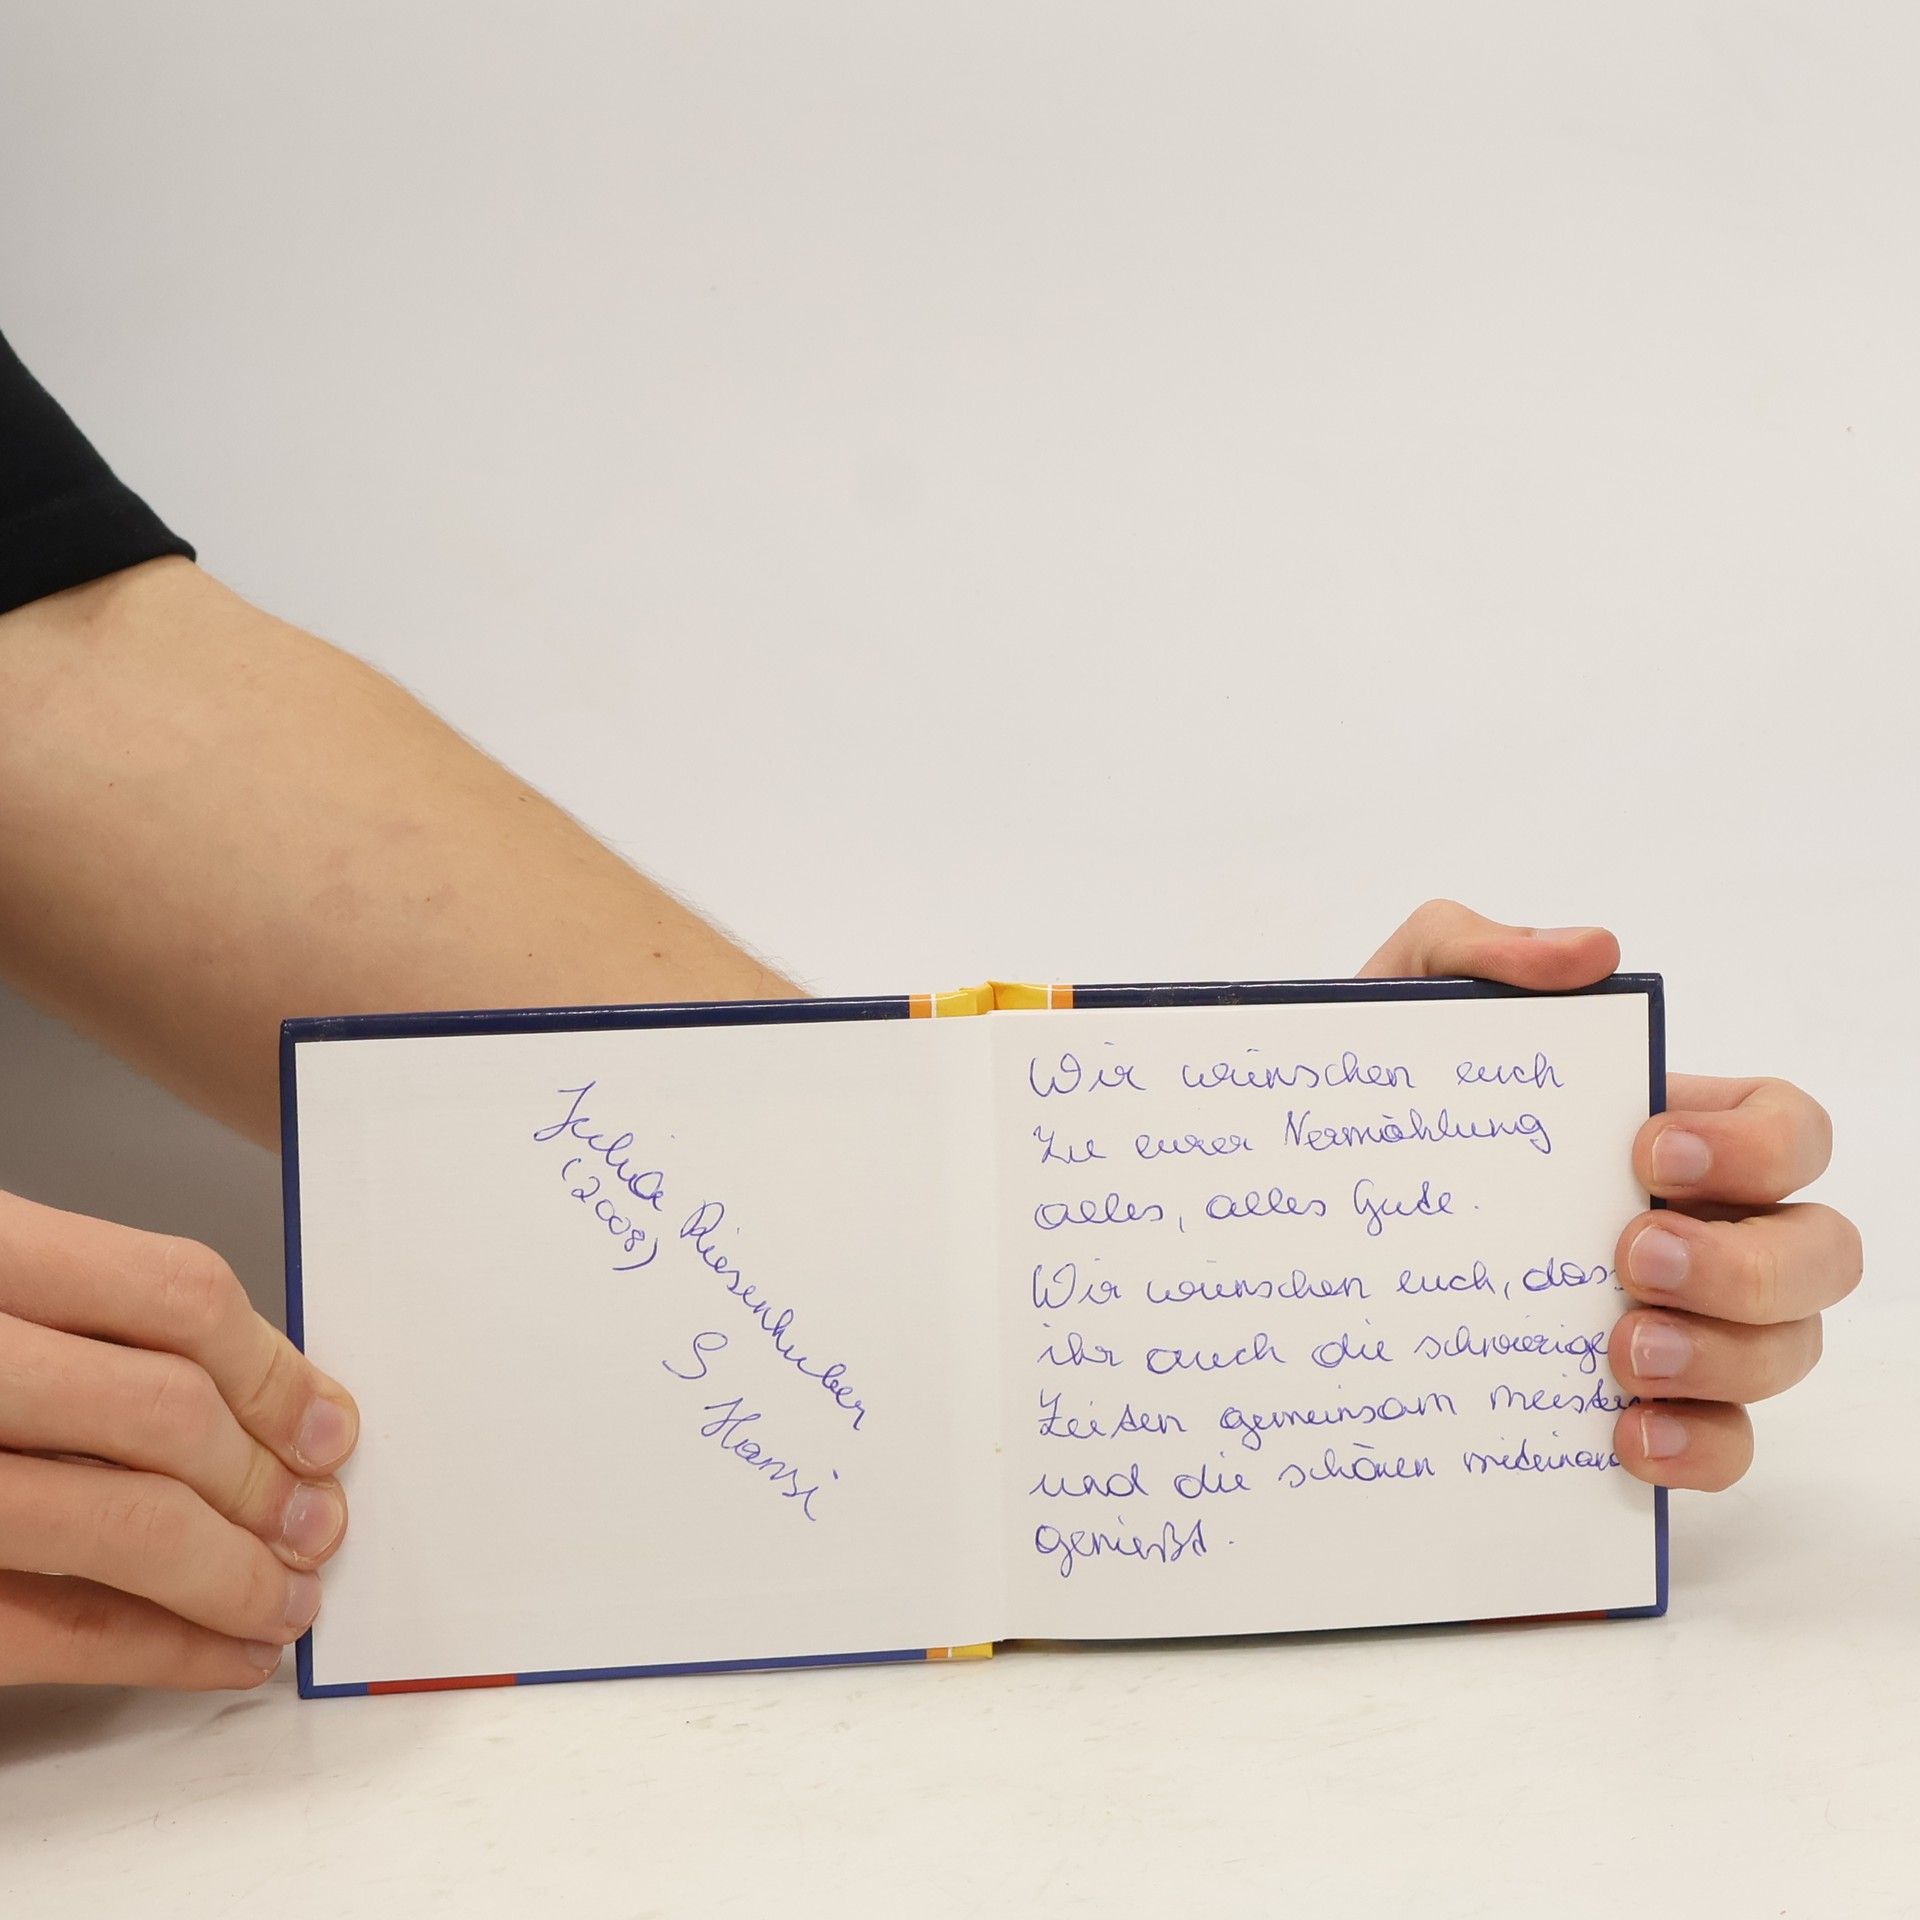 Julia Riesenhuber
(2008)
S Hansi
Wir wünschen euch
zu eurer Vermählung
alles, alles Gute.
Wir wünschen euch, dass
ihr auch die schwierige
Zeiten gemeinsam meister
und die schönen miteinand
genießt.